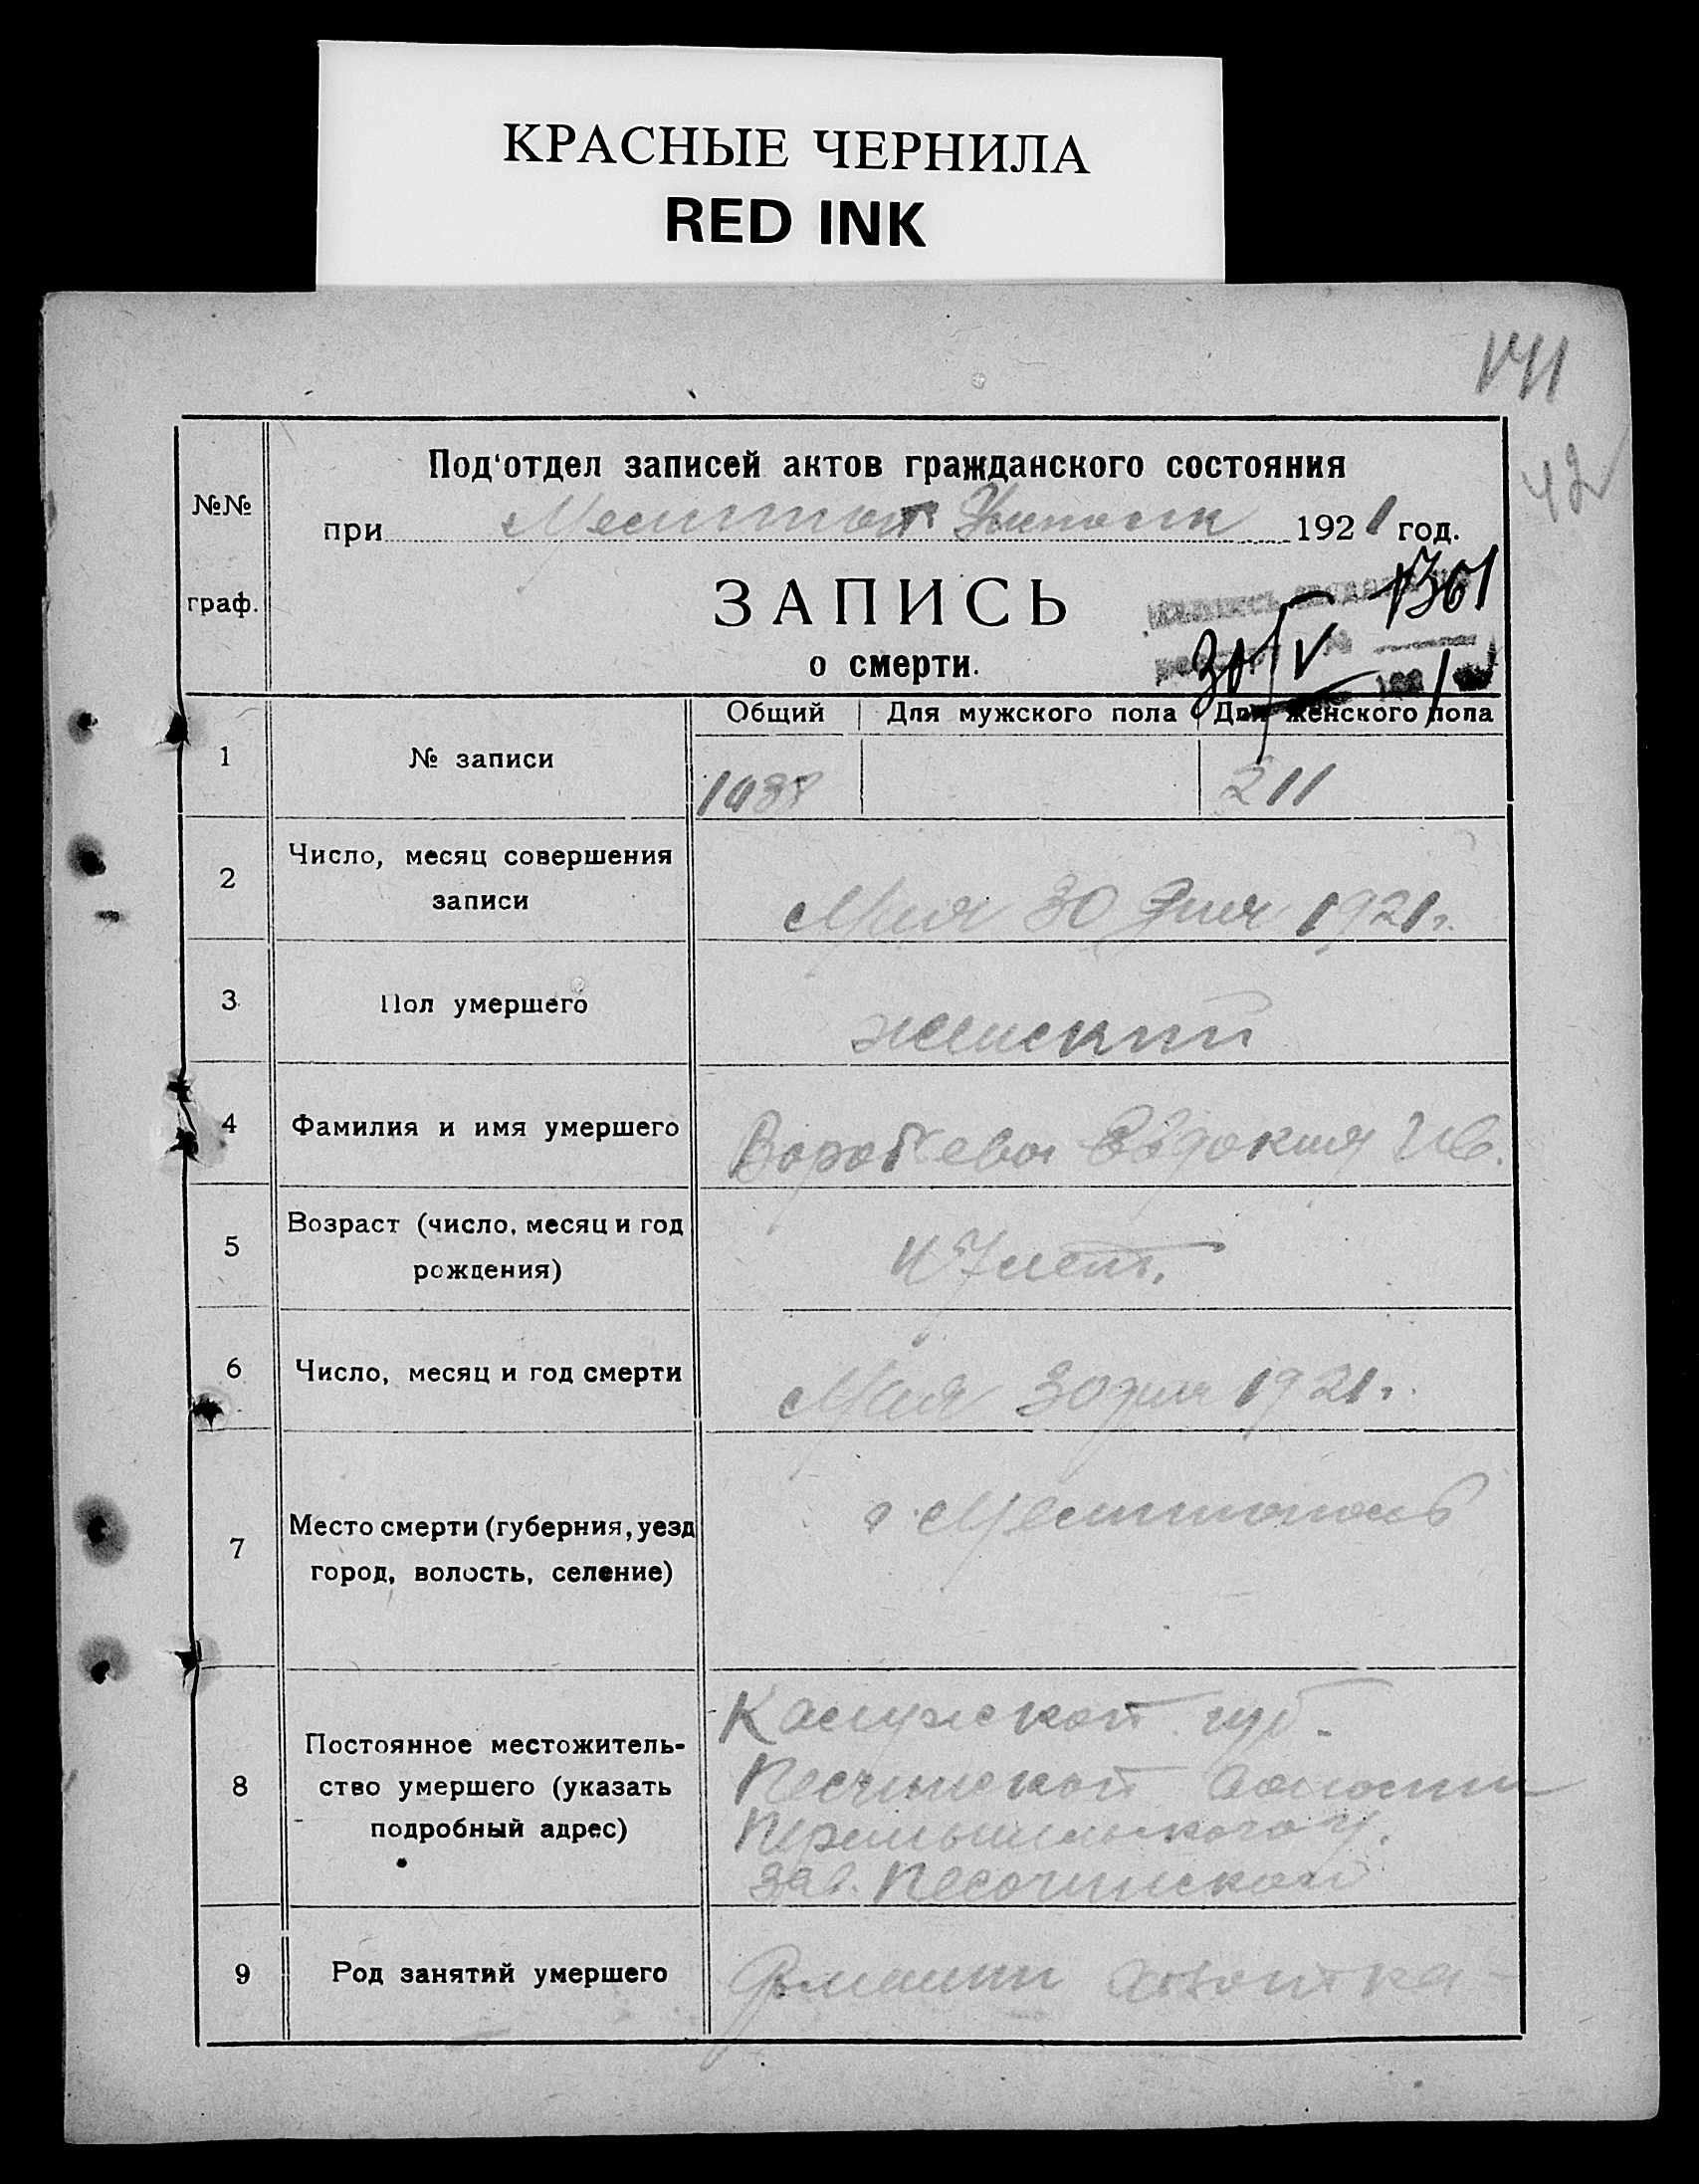 КРАСНЫЕ ЧЕРНИЛА
RED INK
171
42
Под'отдел записей актов гражданского состояния
№№ граф.
при Мелитоп. Уисполк 1921 год.
ЗАПИСЬ
о смерти.
1301
30/V
1
Общий Для мужского пола Для женского пола
1 № записи
211
2 Число, месяц совершения
записи
Мая 30 дня 1921 г.
3 Пол умершего
женский
4 Фамилия и имя умершего
Воробьева Евдокия Ив.
5 Возраст (число, месяц и год
рождения)
47 лет.
6 Число, месяц и год смерти
Мая 30 дня 1921 г.
7 Место смерти (губерния, уезд
город, волость, селение)
г. Мелитополь
8 Постоянное местожитель-
ство умершего (указать
подробный адрес)
Калужской губ.
волости
Перемышльского у.
зав. Песоченской
9 Род занятий умершего
Домашн хозяйка